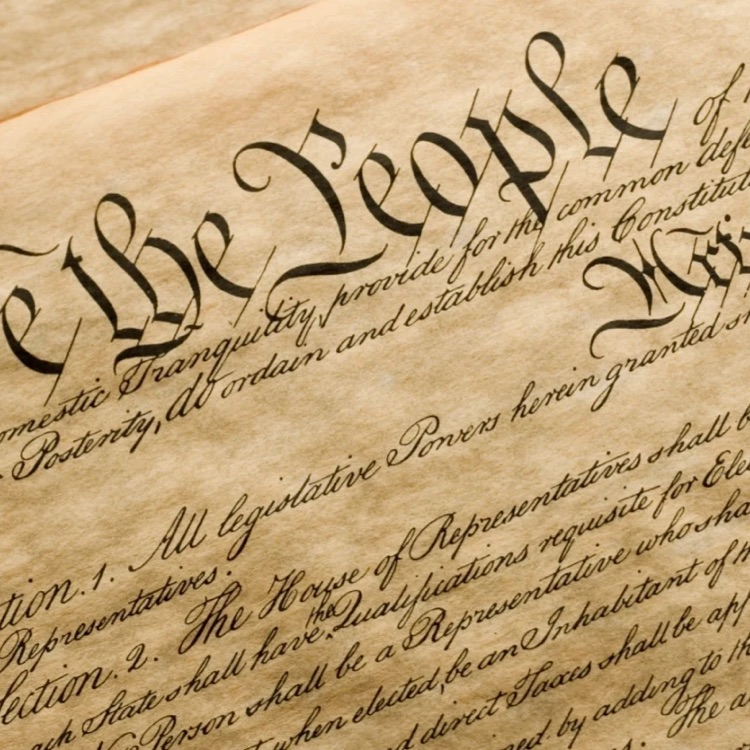 e the People of
omestic Tranquility, provide for the common defe
Posterity, do ordain and establish this Constitut
Arti
tion. 1. All legislative Powers herein granted s
Representatives.
ection. 2. The House of Representatives shall b
ach State shall have the Qualifications requisite for Ele
No Person shall be a Representative who sha
t when elected, be an Inhabitant of th
d direct Taxes shall be app
ned, by adding to th
The a